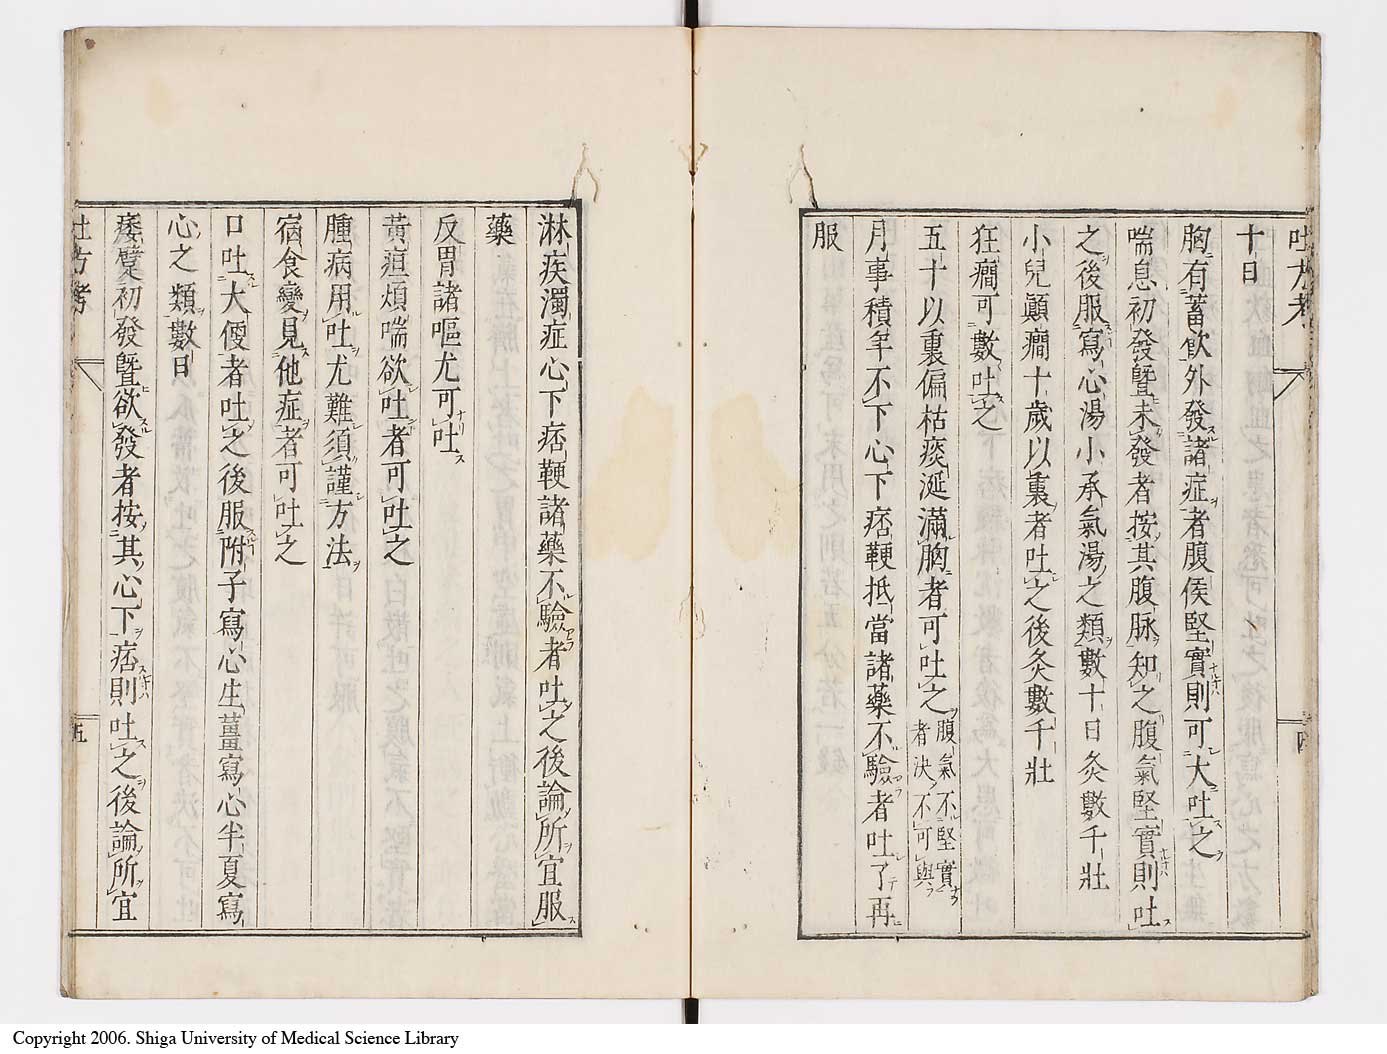 吐方考
四
十日
胸有蓄飲外發諸症者腹侯堅實則可大吐之
喘息初發曁未發者按其腹脉知之腹氣堅實則吐
之後服寫心湯小承氣湯之類數十日灸數千壯
小兒顚癇十歲以裏者吐之後灸數千壯
狂癇可數吐之
五十以裏偏枯痰涎滿胸者可吐之腹氣不堅實
者決不可與
月事積年不下心下痞鞕抵當諸藥不驗者吐了再
服
淋疾濁症心下痞鞕諸藥不驗者吐之後論所宜服
藥
反胃諸嘔尤可吐
黃疸煩喘欲吐者可吐之
腫病用吐尤難須謹方法
宿食變見他症者可吐之
口吐大便者吐之後服附子寫心生薑寫心半夏寫
心之類數日
痿躄初發曁欲發者按其心下痞則吐之後論所宜
吐方考
五
Copyright 2006. Shiga University of Medical Science Library